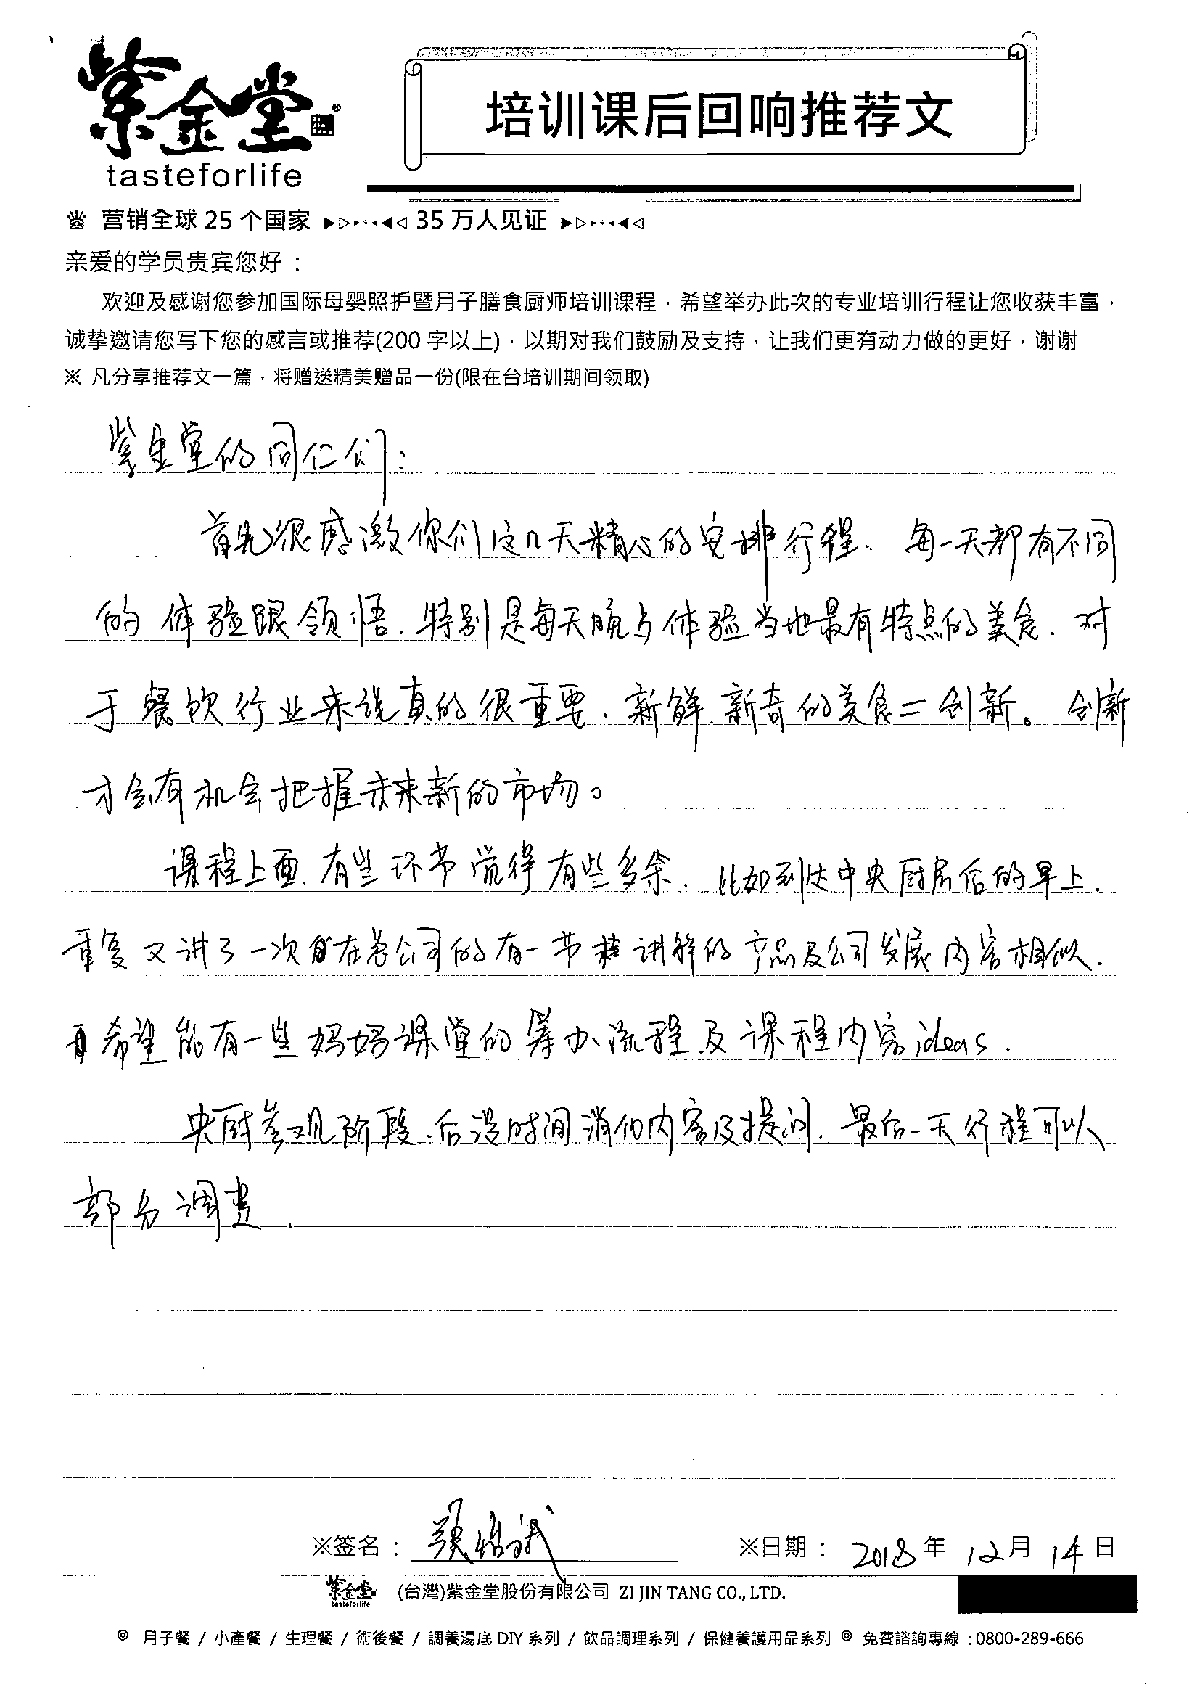 紫金堂®
tasteforlife
培训课后回响推荐文
营销全球 25 个国家 35 万人见证
亲爱的学员贵宾您好：
欢迎及感谢您参加国际母婴照护暨月子膳食厨师培训课程，希望举办此次的专业培训行程让您收获丰富，
诚挚邀请您写下您的感言或推荐(200 字以上)，以期对我们鼓励及支持，让我们更有动力做的更好，谢谢
※ 凡分享推荐文一篇，将赠送精美赠品一份(限在台培训期间领取)
紫金堂的同仁们：
首先很感激你们这几天精心的安排行程. 每一天都有不同
的体验跟领悟. 特别是每天晚上体验当地最有特点的美食. 对
于餐饮行业来说真的很重要. 新鲜 新奇的美食=创新。创新
才会有机会把握未来新的市场。
课程上面. 有些环节觉得有些多余. 比如到达中央厨房后的早上.
重复又讲了一次在总公司的有一节程讲解的产品及公司发展内容相似.
希望能有一些妈妈课堂的筹办流程及课程内容ideas.
央厨参观阶段. 后没时间消化内容及提问. 最后一天行程可以
部分调整.
※签名：
※日期： 2018 年 12 月 14 日
紫金堂 tasteforlife (台灣)紫金堂股份有限公司 ZI JIN TANG CO., LTD.
◎ 月子餐 / 小產餐 / 生理餐 / 術後餐 / 調養湯底 DIY 系列 / 飲品調理系列 / 保健養護用品系列 ◎ 免費諮詢專線：0800-289-666